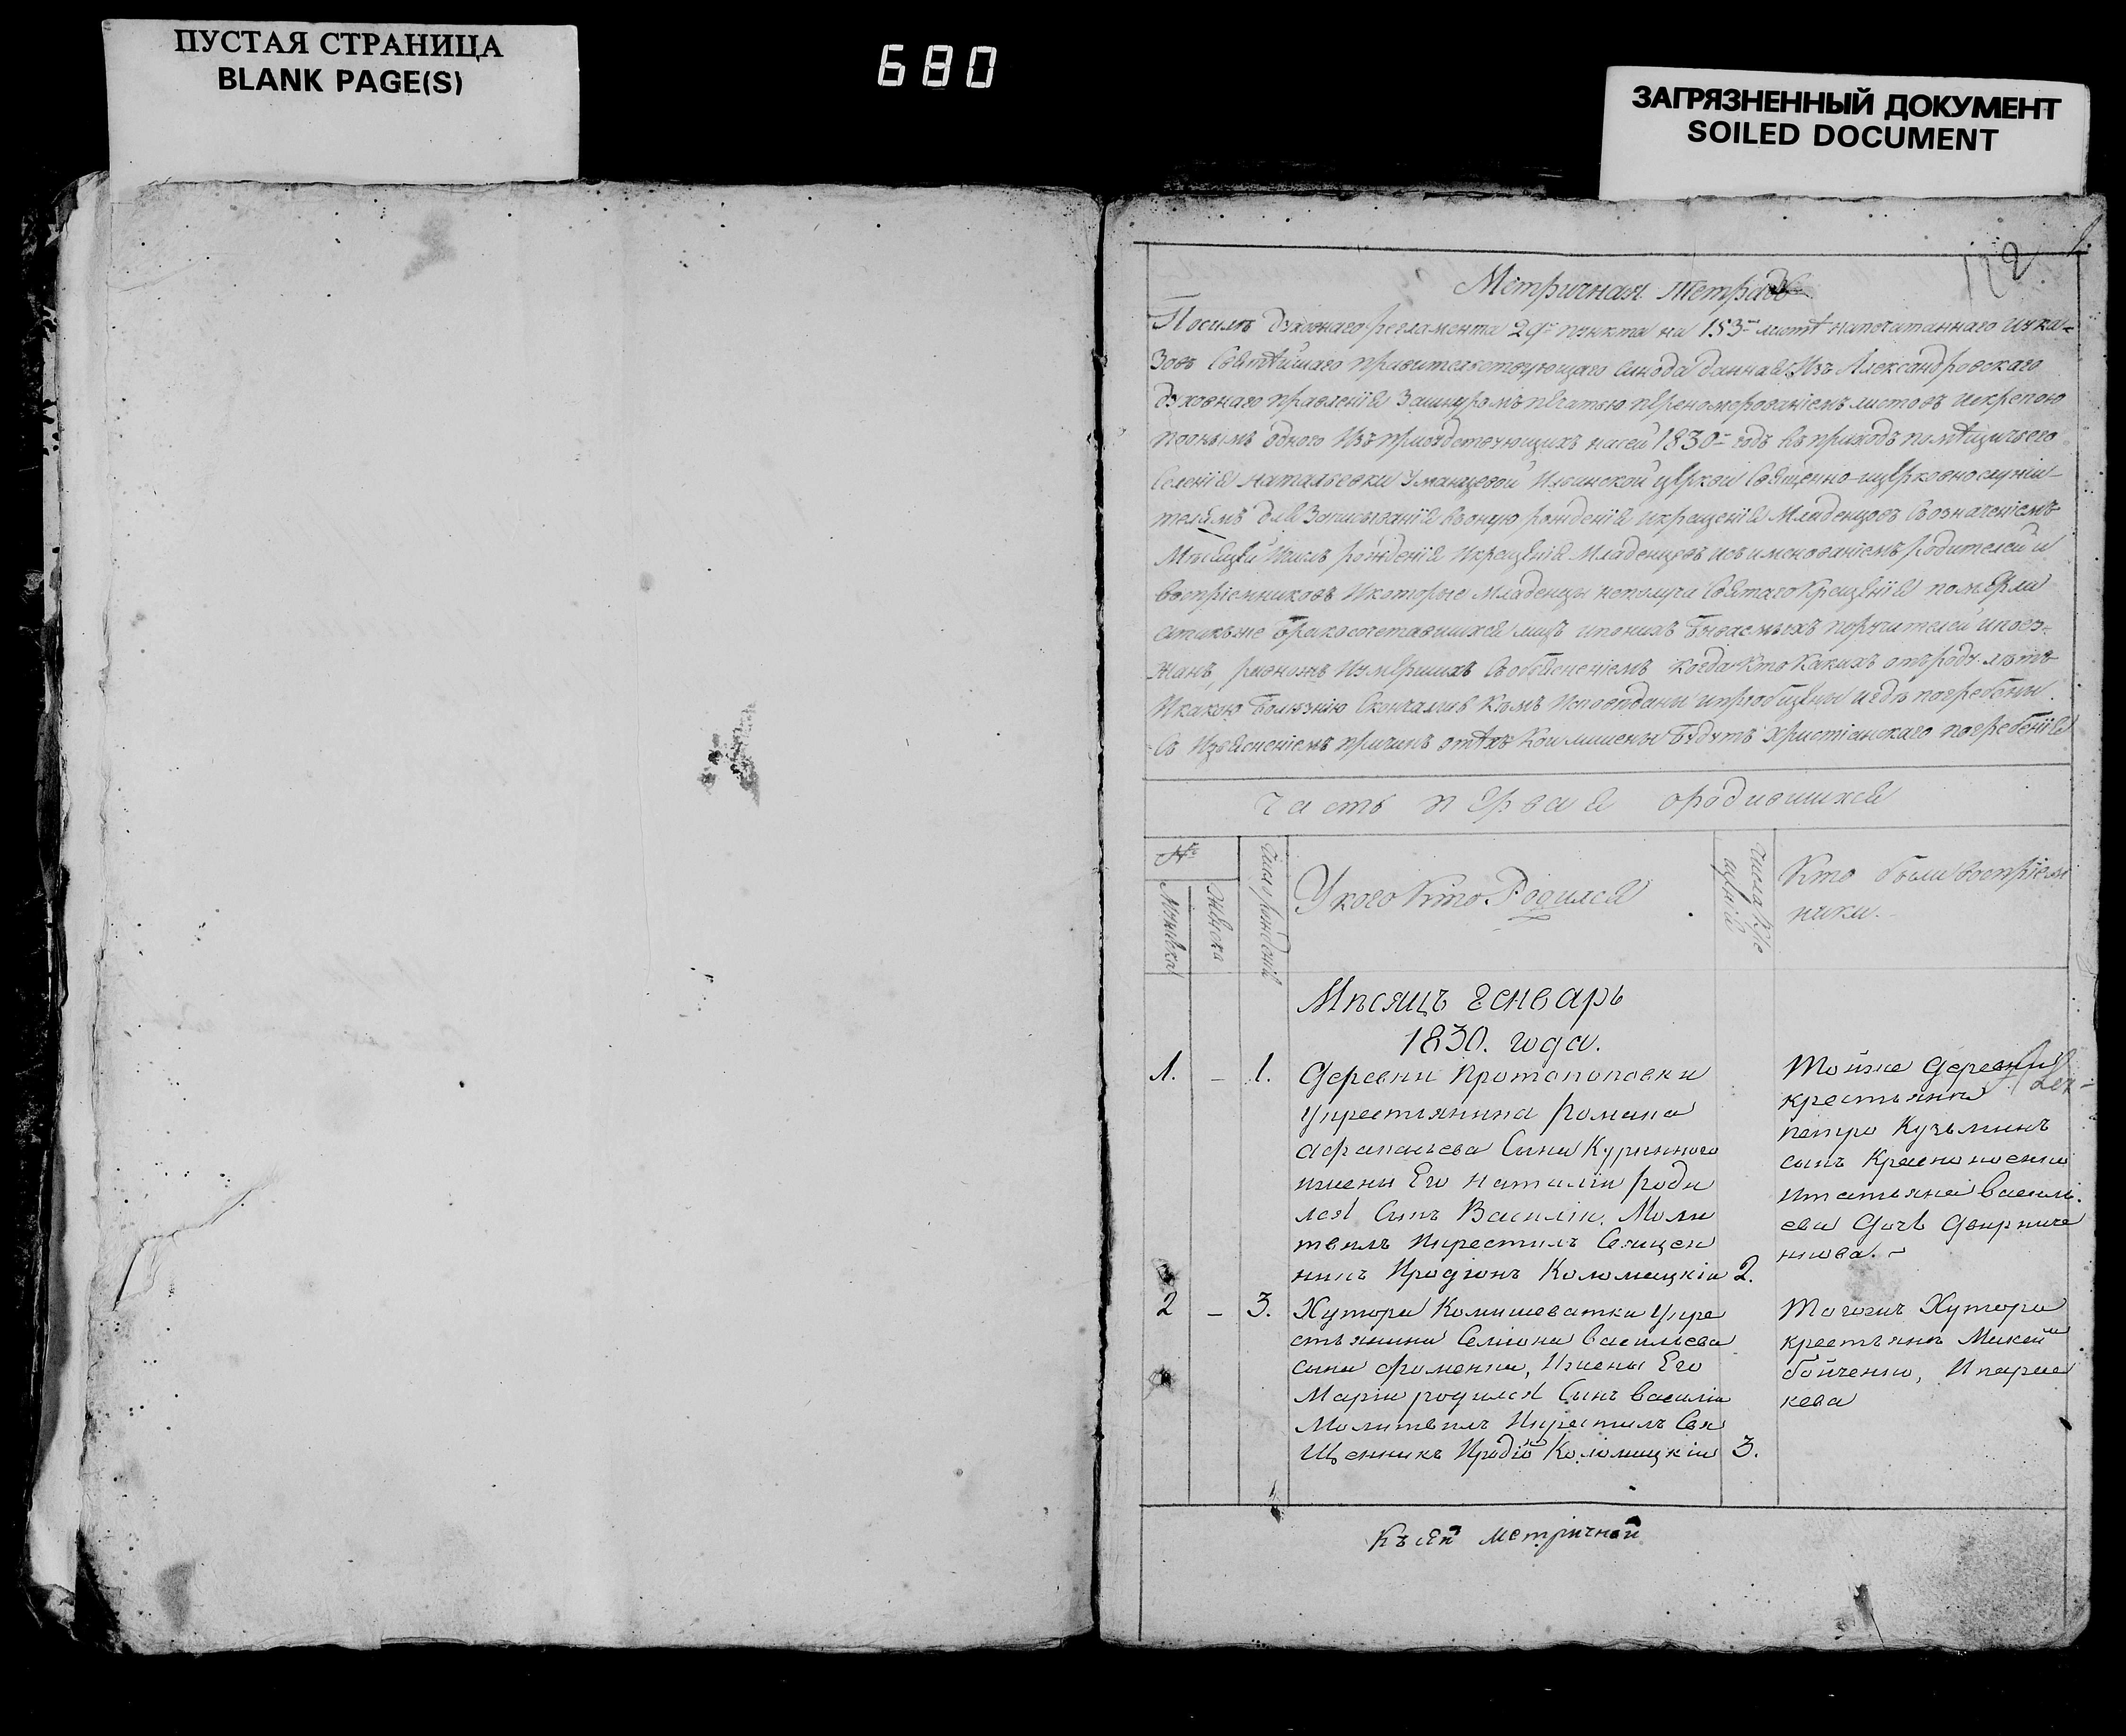 ПУСТАЯ СТРАНИЦА
BLANK PAGE(S)
680
ЗАГРЯЗНЕННЫЙ ДОКУМЕНТ
SOILED DOCUMENT
Метричная тетрадь
По силѣ духовнаго регламента 29го пункта на 153мъ листѣ напечатаннаго и ука-
зовъ Святѣйшаго правительствующаго Синода данная Изъ Александровскаго
духовнаго правленія За шнуромъ печатью переномерованіемъ листовъ и скрепою
одного Изъ присудствующихъ на сей 1830й годъ въ приходъ помѣщичьего
Селенія Натальевки Уманцевой Ильинской церкви Священно-церковнослужи-
телямъ для Записыванія въ оную рожденія и крещенія Младенцовъ Съ означеніемъ
Мѣсяцей и числъ рожденія и крещенія Младенцевъ и съ именованіемъ родителей и
воспріемниковъ И которые Младенцы не получа Святаго Крещенія померли
бракосочетавшихся лицъ и по нихъ бываемыхъ поручителей и поез-
жанъ, равно и умершихъ Съ объясненіемъ когда Кто Какихъ отъ роду лѣтъ
И какою болезнію Скончался Кѣмъ Исповѣданы и пріобщены и гдѣ погребены
Съ Изъясненіемъ причинъ отъ Кои лишены будутъ Христіанскаго погребенія
часть первая о родившихся
№
Мужеска
Женска
Число рожденій
У кого Кто Родился
Числа Кре
щеній
Кто были воспріем
ники.
Мѣсяцъ генварь
1830. года.
1. – 1. Деревни Протопоповки
у крестьянина Романа
Афанасьева Сына Куринного
и жены Его Наталіи роди
лся Сынъ Василій. Моли
твилъ и крестилъ Священ
никъ Иродіонъ Коломацкій 2.
Тойже деревни
крестьянинъ
петро Кузьминъ
сынъ Красноносенко
и татьяна Василь
ева дочь
2 – 3. Хутора Комишеватки у кре
стьянина Семіона Васильева
сына Фоменка, И жены Его
Маріи родился Сынъ Василій
Молитвилъ И крестилъ Свя
щенникъ Иродіо Коломацкій 3.
Тогожъ Хутора
крестьянъ Микей
бойченко, И параск
кева
Къ сей метричной